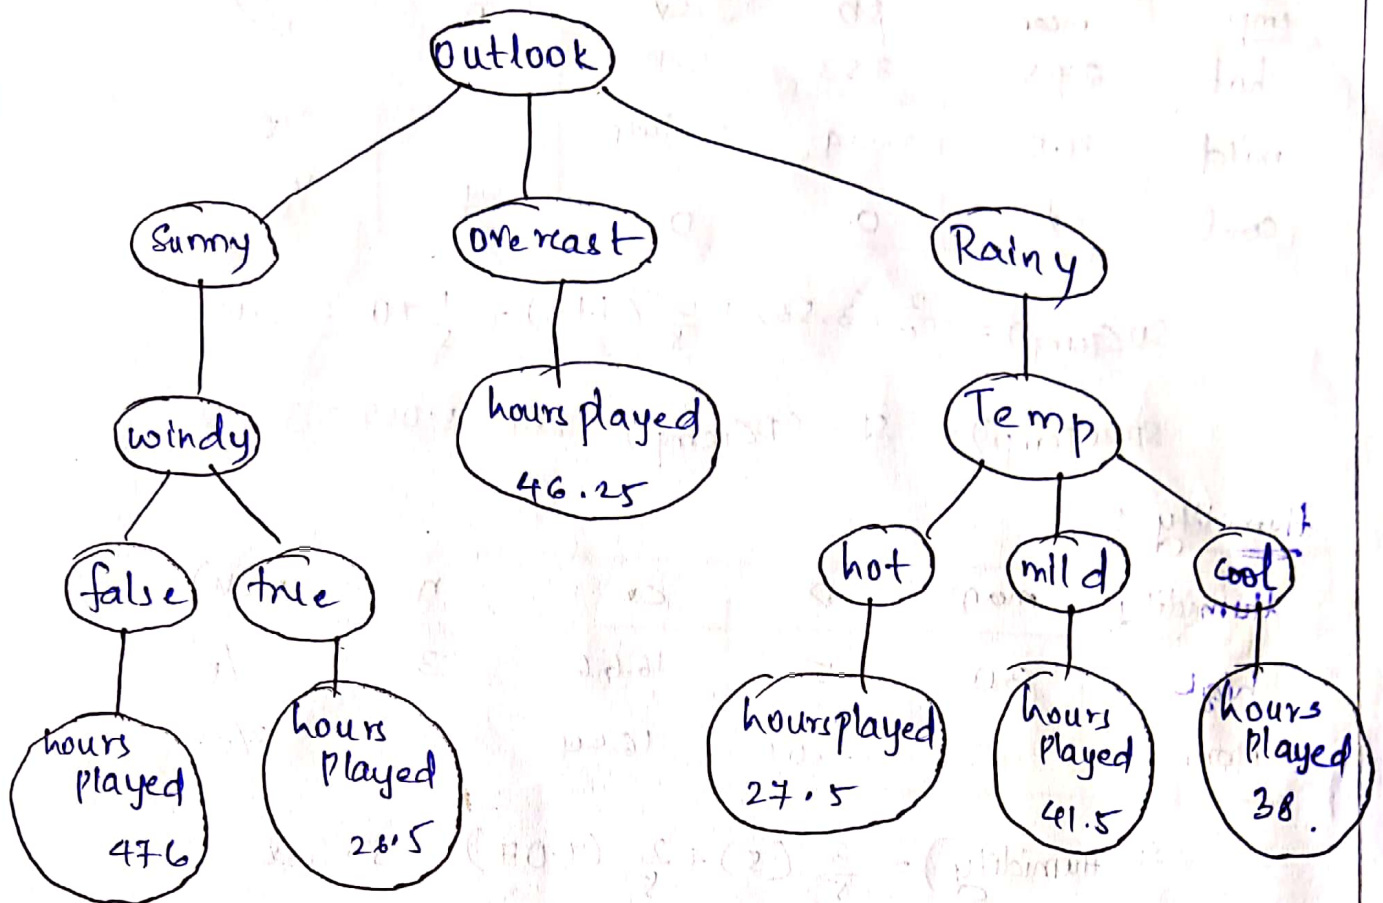 Outlook
Sunny
overcast
Rainy
windy
hours played
46.25
Temp
false
true
hot
mild
cool
hours
played
476
hours
played
hoursplayed
27.5
hours
played
41.5
hours
played
38.